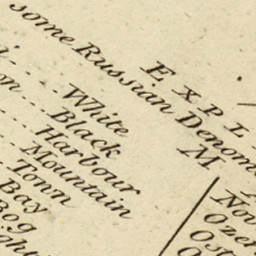 EXPL
some Russian Denom
M
White
Black
Harbour
Mountain
Town
Bay
Nov
Ozer
Ost